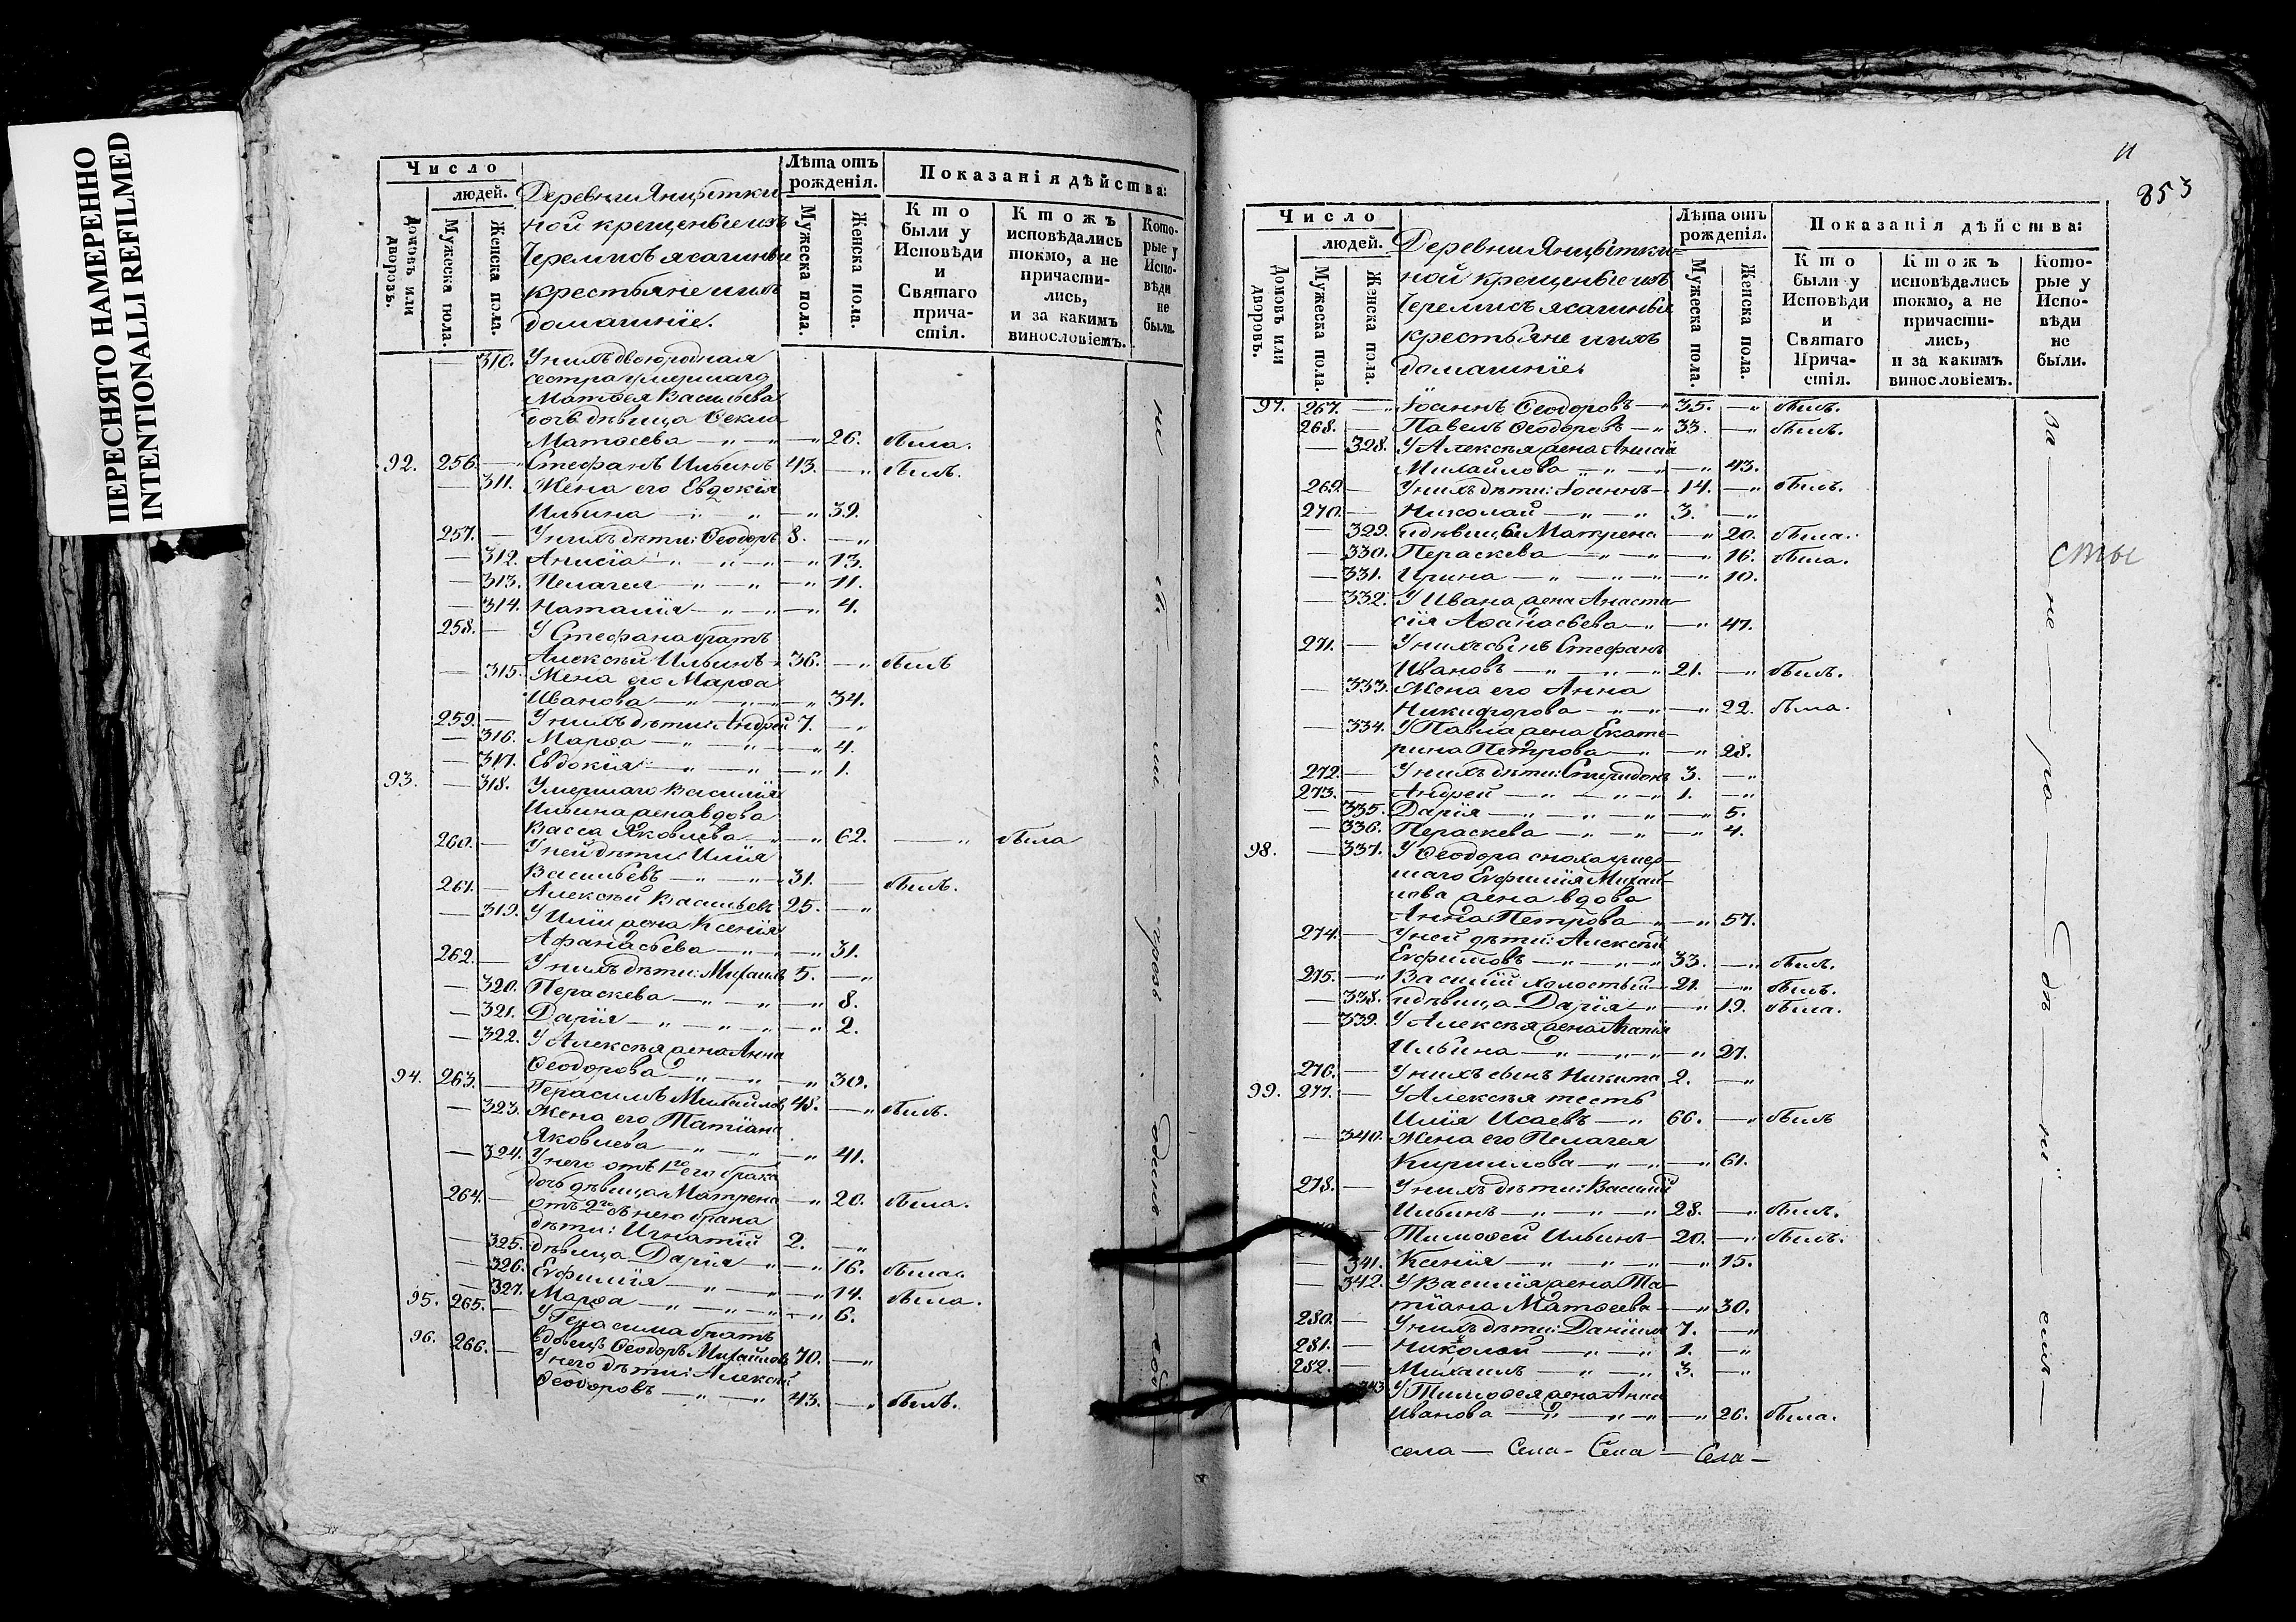 ПЕРЕСНЯТО НАМЕРЕННО
INTENTIONALLI REFILMED
Число
людей.
Домовъ или дворовъ.
Мужеска пола.
Женска пола.
Деревни
ной крещеные изъ
Черемисъ ясашные
крестьяне и ихъ
домашніе.
Лѣта отъ рожденія.
Мужеска пола.
Женска пола.
Показанія дѣйства:
Кто были у Исповѣди и Святаго причастія.
Ктожъ исповѣдались токмо, а не причастились, и за какимъ винословіемъ.
Которые у Исповѣди не были.
— 310. У нихъ двоюродная
сестра умершаго
Матѳея Васильева
дочь дѣвица Ѳекла
Матѳеева — „ — „ — „ 26. была.
92. 256. — Стефанъ Ильинъ 43. — „ былъ.
— 311. Жена его Евдокія
Ильина — „ — „ — „ 39.
257. — У нихъ дѣти: Ѳеодоръ 8. — „
— 312. Анисія — „ — „ — „ 13.
— 313. Пелагея — „ — „ — „ 11.
— 314. Наталія — „ — „ — „ 4.
258. — У Стефана братъ
Алексѣй Ильинъ 36. — „ былъ
— 315. Жена его Марѳа
Иванова — „ — „ — „ 34.
259. — У нихъ дѣти: Андрей 7. — „
— 316. Марѳа — „ — „ — „ 4.
— 317. Евдокія — „ — „ — „ 1.
93. — 318. Умершаго Василія
Ильина жена вдова
Васса Яковлева — „ — „ 62. — „ была
260. — У ней дѣти: Илія
Васильевъ — „ — „ 31. — былъ.
261. — Алексѣй Васильевъ 25. — „
— 319. У Иліи жена Ксенія
Афанасьева — „ — „ 31.
262. — У нихъ дѣти: Михаилъ 5. — „
— 320. Параскева — „ — „ — „ 8.
— 321. Дарія — „ — „ — „ 2.
— 322. У Алексѣя жена Анна
Ѳеодорова — „ — „ — „ 30.
94. 263. — Герасимъ Михайловъ 48. — „ былъ.
— 323. Жена его Татіана
Яковлева — „ — „ — „ 41.
— 324. У него отъ 1го его брака
дочь дѣвица Матрена — „ 20. была.
264. — отъ 2го съ нею брака
дѣти: Игнатій 2. — „
— 325. дѣвица Дарія — „ — „ 16. была.
— 326. Евфимія — „ — „ — „ 14. была.
— 327. Марѳа — „ — „ — „ 6.
95. 265. — У Герасима братъ
вдовецъ Ѳеодоръ Михайловъ 70. — „
96. 266. — У него дѣти: Алексѣй
Ѳеодоровъ — „ — „ 43. — „ былъ.
11
853
Число
людей.
Домовъ или дворовъ.
Мужеска пола.
Женска пола.
Деревни
ной крещеные изъ
Черемисъ ясашные
крестьяне и ихъ
домашніе
Лѣта отъ рожденія.
Мужеска пола.
Женска пола.
Показанія дѣйства:
Кто были у Исповѣди и Святаго Причастія.
Ктожъ исповѣдались токмо, а не причастились, и за какимъ винословіемъ.
Которые у Исповѣди не были.
97. 267. — „ Іоаннъ Ѳеодоровъ — „ 35. — „ былъ.
268. — Павелъ Ѳеодоровъ — „ 33. — „ былъ.
— 328. У Алексѣя жена Анисія
Михайлова — „ — „ — „ 43.
269. — У нихъ дѣти: Іоаннъ — 14. — „ былъ.
270. — Николай — „ — „ 3. — „
— 329. и дѣвицы Матрена — „ 20. была.
— 330. Пераскева — „ — „ — „ 16. была.
— 331. Ирина — „ — „ — „ 10.
— 332. У Ивана жена Анаста-
сія Аѳанасьева — „ — „ 47.
271. — У нихъ сынъ Стефанъ
Ивановъ — „ — „ 21. — „ былъ.
— 333. Жена его Анна
Никифорова — „ — „ — „ 22. была.
— 334. У Павла жена Екате-
рина Петрова — „ — „ 28.
272. — У нихъ дѣти: Спиридонъ 3. — „
273. — Андрей — „ — „ 1. — „
— 335. Дарія — „ — „ — „ 5.
— 336. Пераскева — „ — „ — „ 4.
98. — 337. У Ѳеодора сноха умер-
шаго Евфимія Михай-
лова жена вдова
Анна Петрова — „ — „ 57.
274. — У ней дѣти: Алексѣй
Евфимовъ — „ — „ 33. — „ былъ.
275. — „ Василій холостый — 21. — „ былъ.
— 338. и дѣвица Дарія — „ — „ 19. была.
— 339. У Алексѣя жена Агапія
Ильина — „ — „ — „ 27.
276. — У нихъ сынъ Никита 2. — „
99. 277. — У Алексѣя тесть
Илія Исаевъ — „ 66. — „ былъ
— 340. Жена его Пелагея
Кириллова — „ — „ — „ 61.
278. — У нихъ дѣти: Василій
Ильинъ — „ — „ 28. — „ былъ.
— Тимоѳей Ильинъ — 20. — „ былъ.
— 341. Ксенія — „ — „ — „ 15.
— 342. У Василія жена Та-
тіана Матѳеева — „ 30.
280. — У нихъ дѣти: Даніилъ 7. — „
281. — Николай — „ — „ 1. — „
282. — Михаилъ — „ — „ 3. — „
343 У Тимоѳея жена Анна
Иванова — „ — „ — „ 26. была.
села — Села — Села — Села —